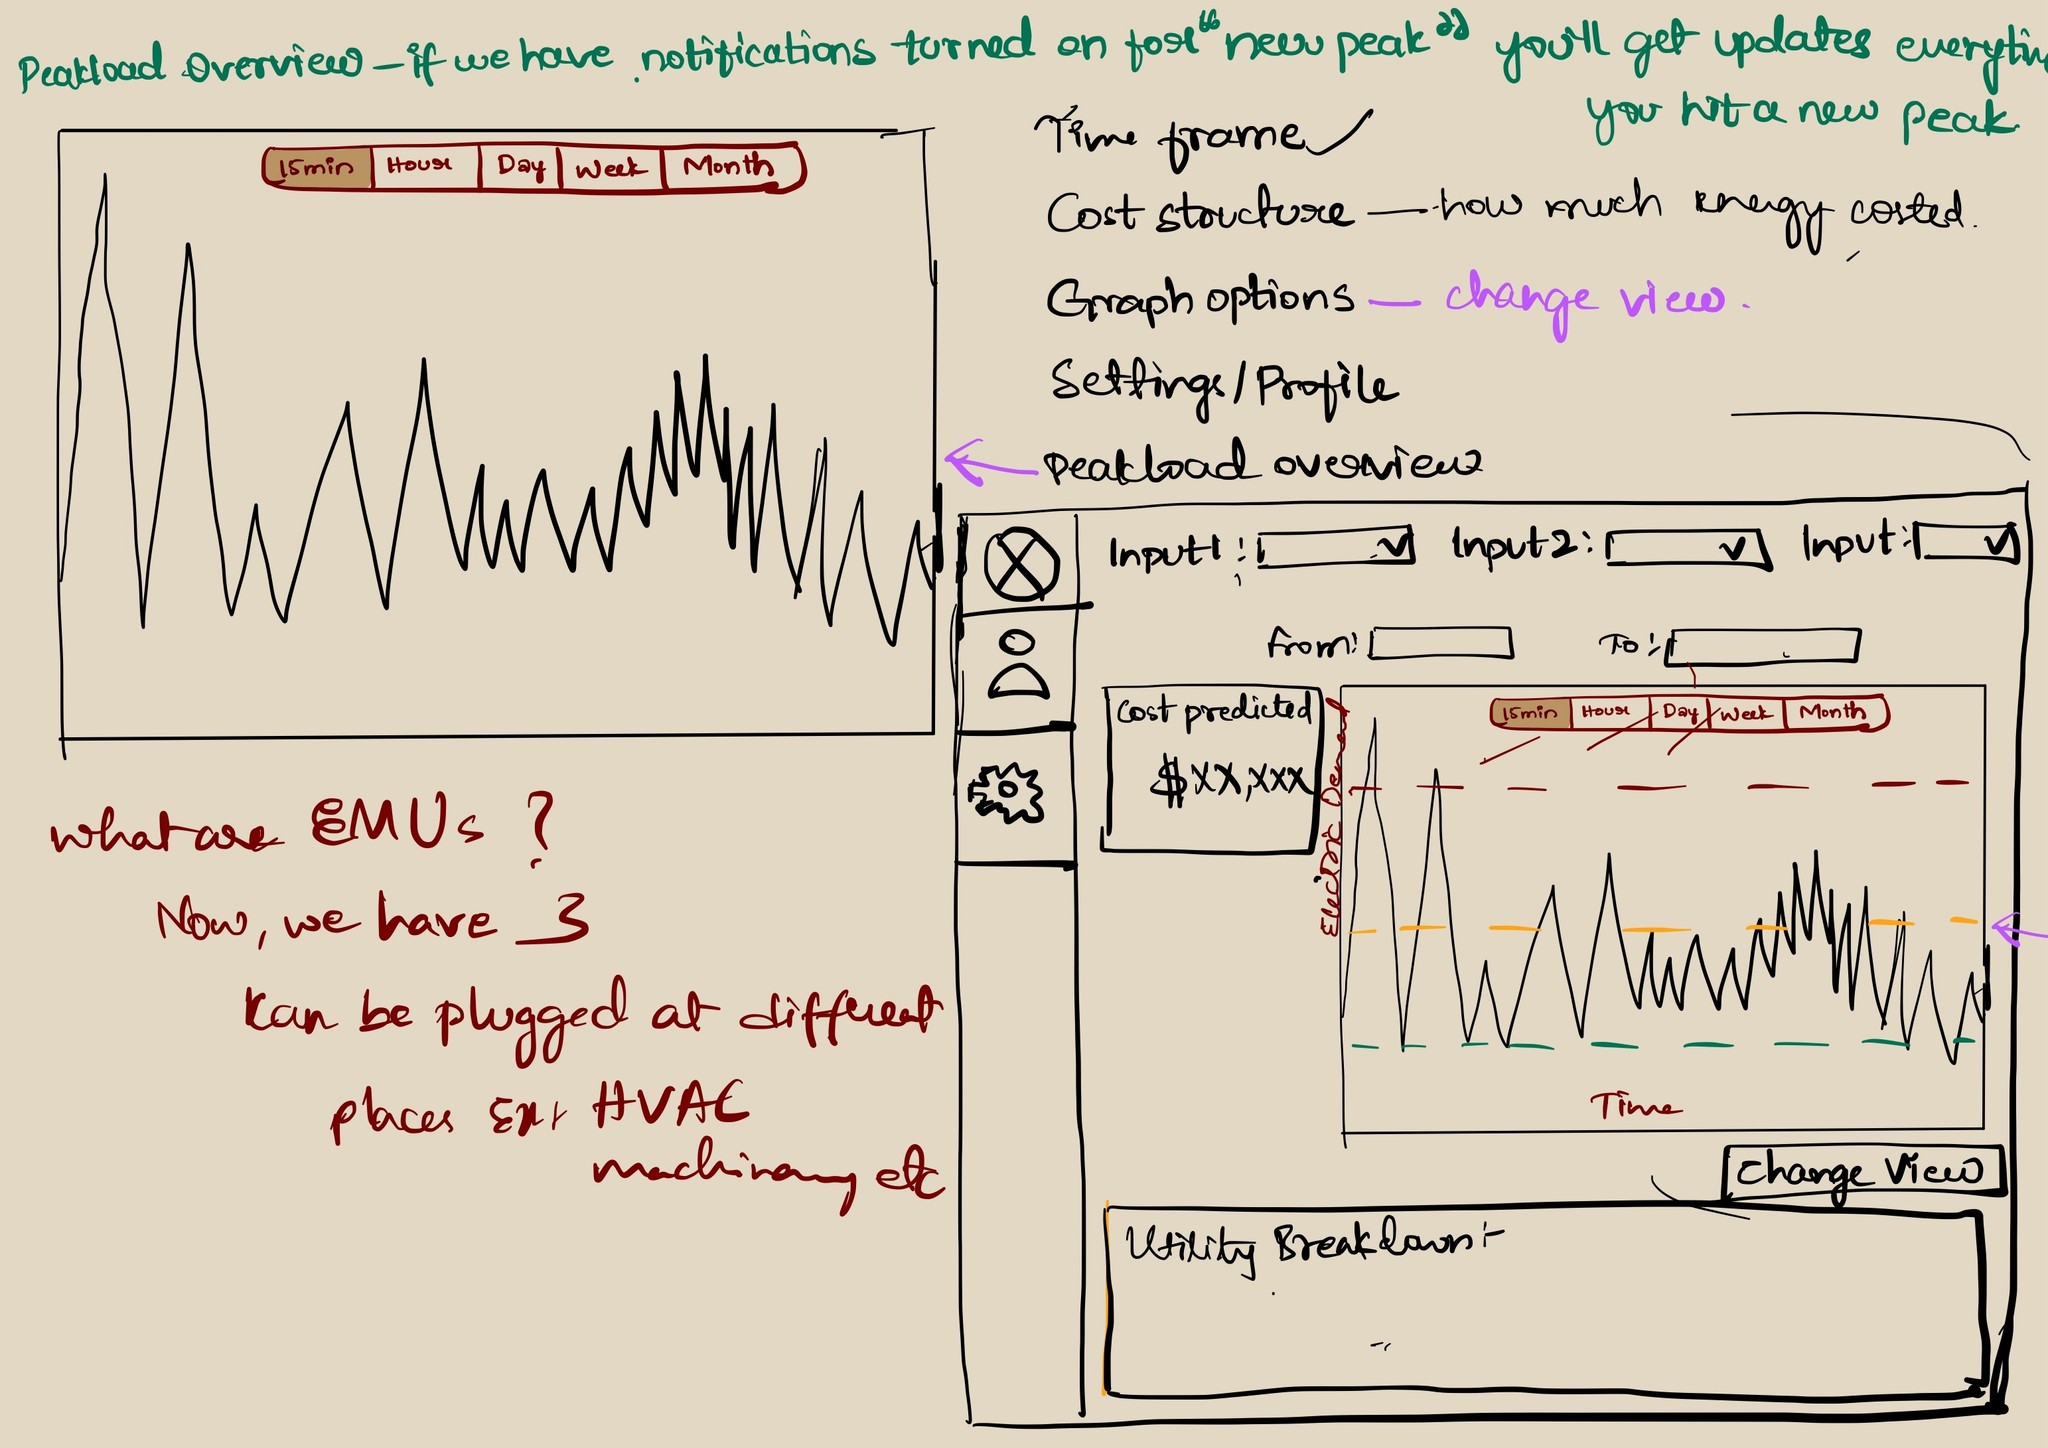 Peakload overview – if we have notifications turned on for "new peak" you'll get updates everytim
you hit a new peak
15min Hour Day Week Month
Time frame ✓
Cost structure — how much energy costed.
Graph options — change view.
Settings/Profile
Peakload overview
what are EMUs ?
Now, we have 3
can be plugged at different
places Ex: HVAC
machinary etc
Input1:
Input2:
Input:
From:
To:
Cost predicted
$XX,XXX
15min Hour Day Week Month
Electric Demand
Time
Change View
Utility Breakdown:-